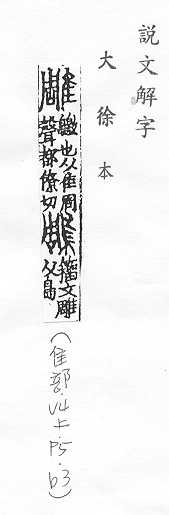 說文解字
大徐本
雕 鷻也从隹周
聲都僚切 鵰 籒文雕
从鳥
(隹部.V4上.P5.b3)